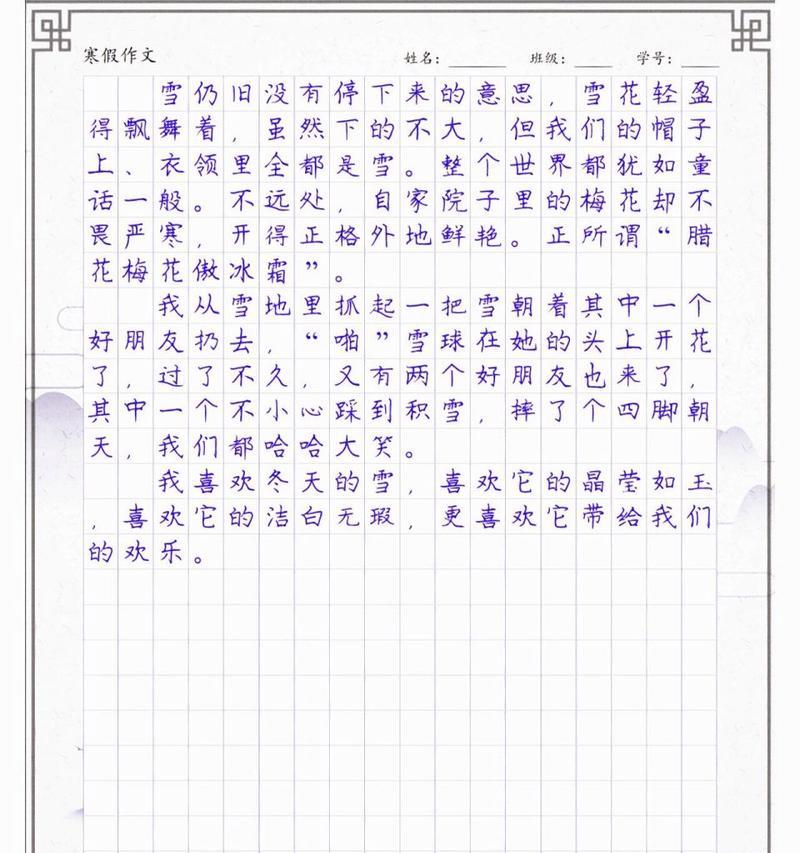 寒假作文 姓名：______ 班级：____ 学号：____
雪仍旧没有停下来的意思，雪花轻盈
得飘舞着，虽然下的不大，但我们的帽子
上、衣领里全都是雪。整个世界都犹如童
话一般。不远处，自家院子里的梅花却不
畏严寒，开得正格外地鲜艳。正所谓“腊
花梅花傲冰霜”。
我从雪地里抓起一把雪朝着其中一个
好朋友扔去，“啪”雪球在她的头上开花
了，过了不久，又有两个好朋友也来了，
其中一个不小心踩到积雪，摔了个四脚朝
天，我们都哈哈大笑。
我喜欢冬天的雪，喜欢它的晶莹如玉
，喜欢它的洁白无瑕，更喜欢它带给我们
的欢乐。